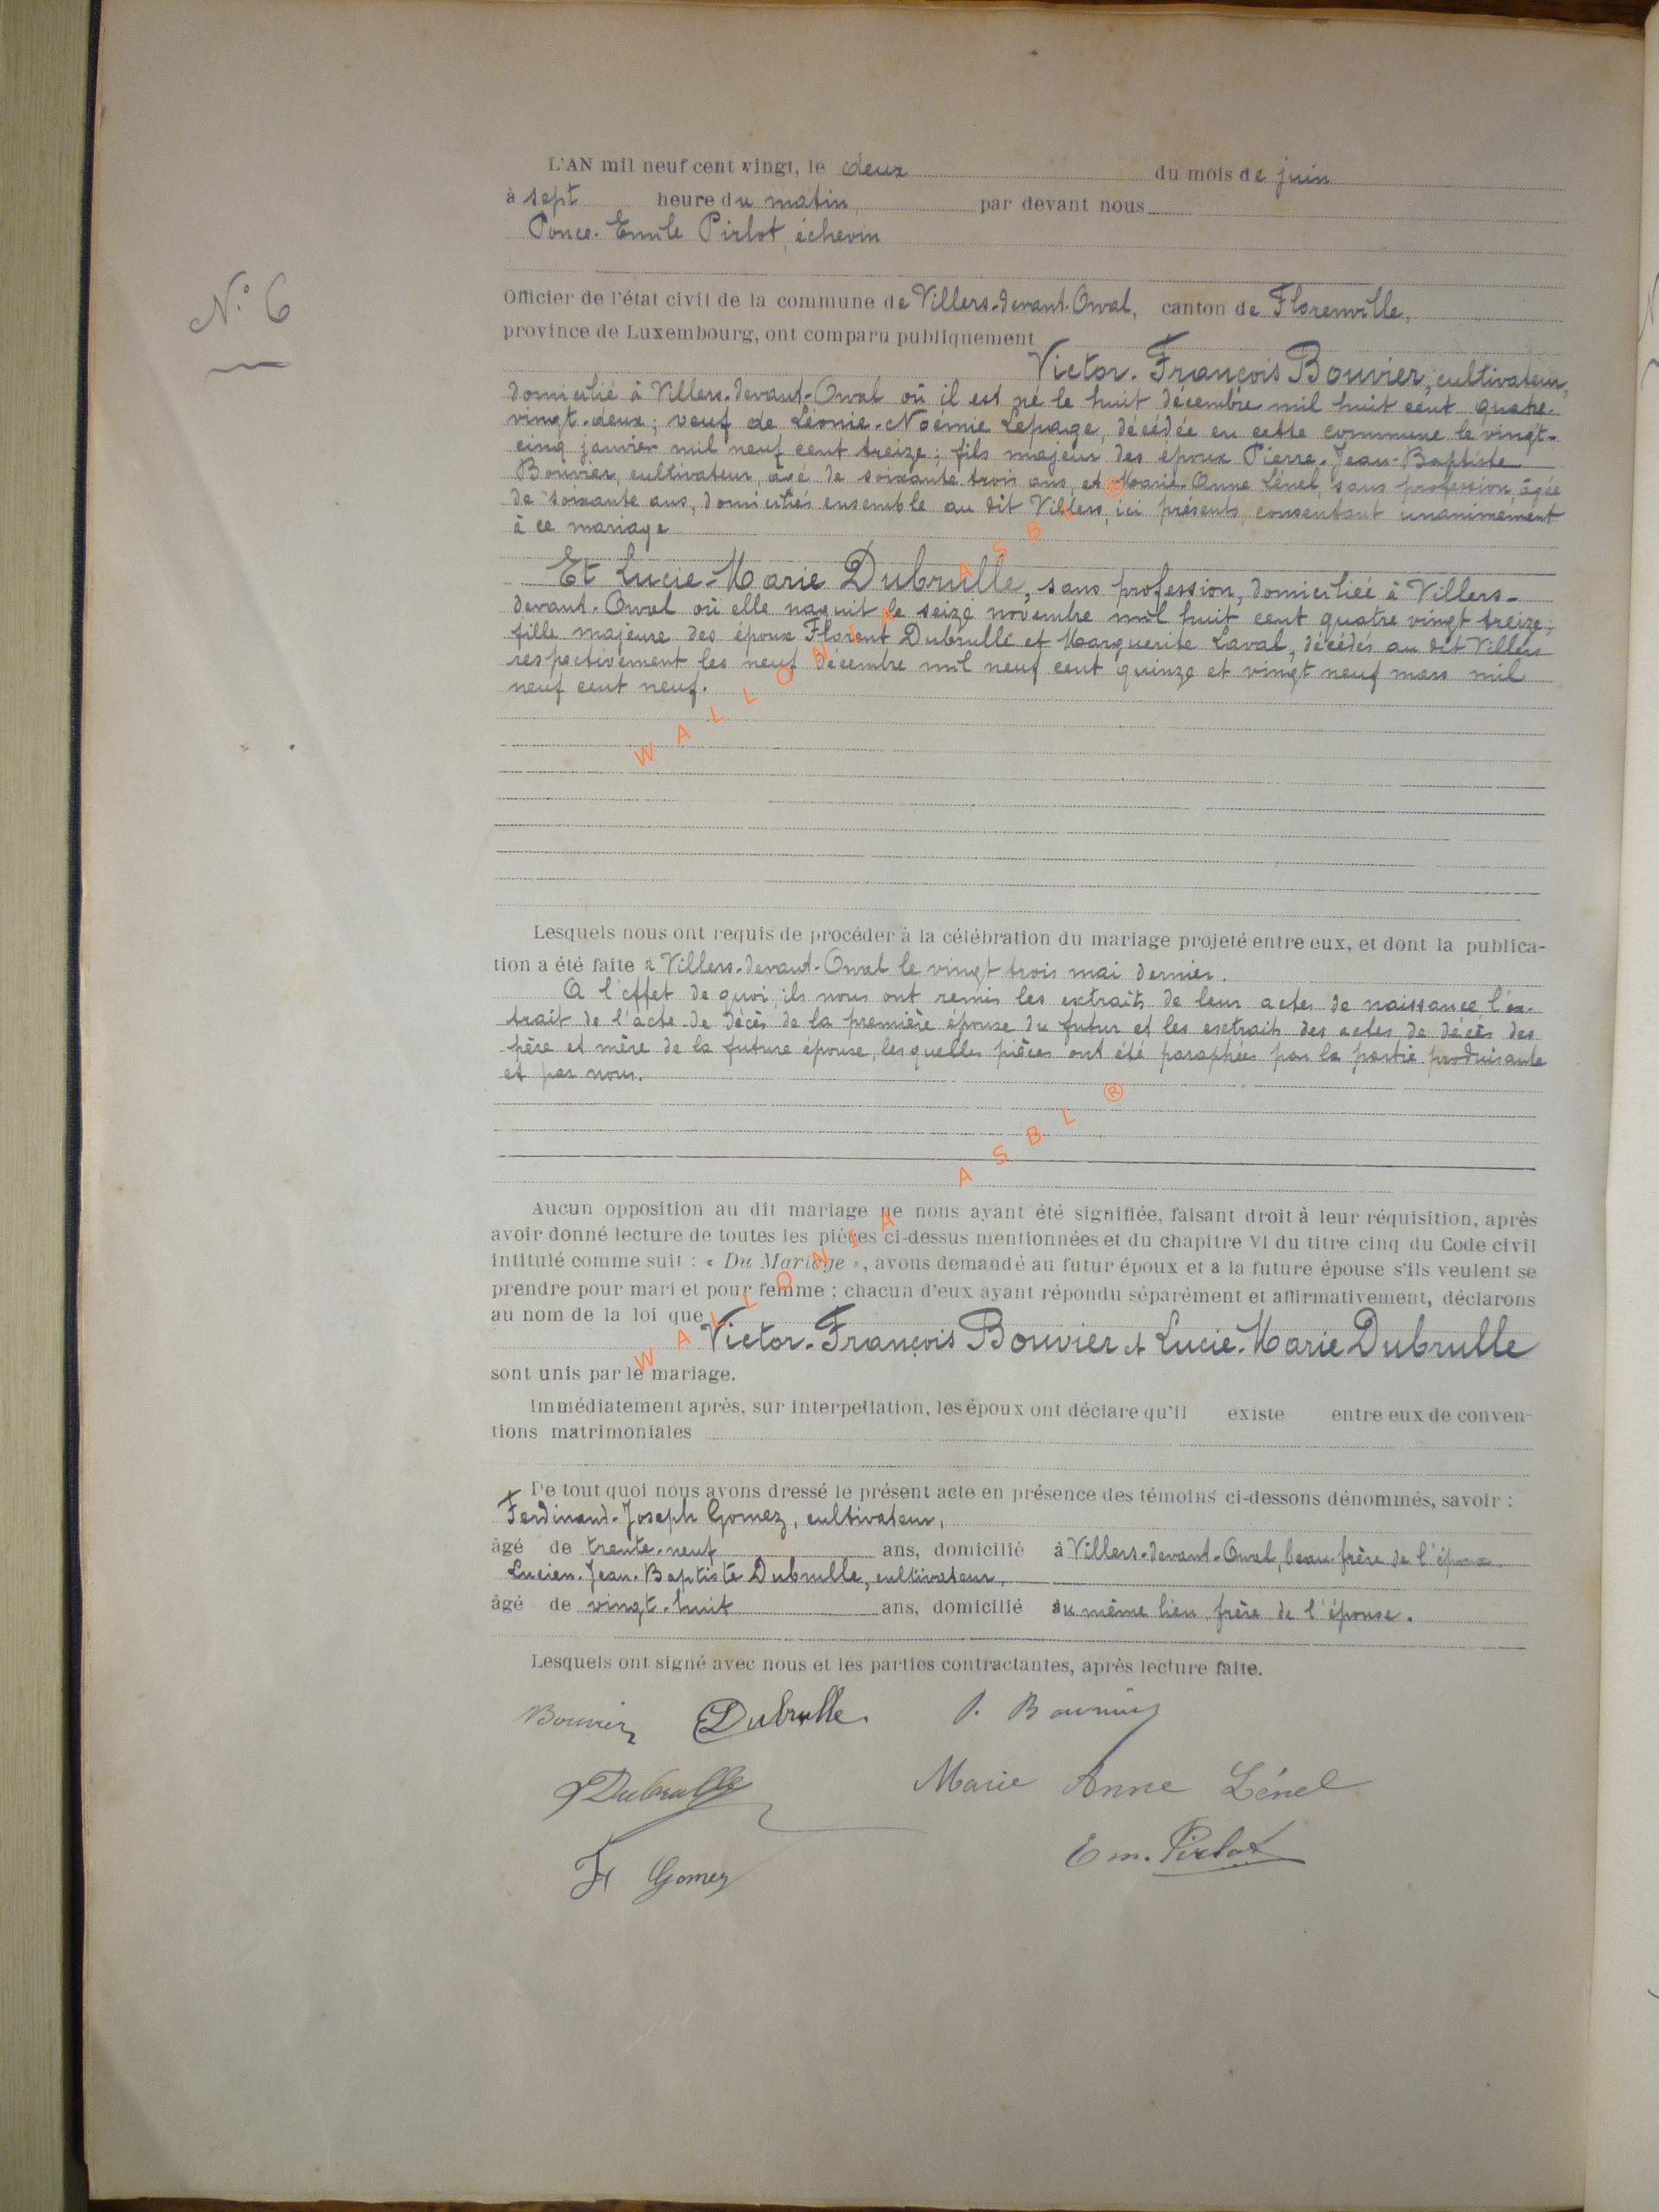 L'AN mil neuf cent vingt, le deux du mois de juin
à sept heure du matin, par devant nous
Ponce-Emile Pirlot, échevin
N° 6
Officier de l'état civil de la commune de Villers-devant-Orval, canton de Florenville,
province de Luxembourg, ont comparu publiquement
Victor-François Bouvier, cultivateur,
domicilié à Villers-devant-Orval où il est né le huit décembre mil huit cent quatre-
vingt-deux; veuf de Léonie-Noémie Lepage, décédée en cette commune le vingt-
cinq janvier mil neuf cent treize; fils majeur des époux Pierre-Jean-Baptiste
Bouvier, cultivateur, âgé de soixante trois ans, et Marie-Anne Lénel, sans profession, âgée
de soixante ans, domiciliés ensemble au dit Villers, ici présents, consentant unanimement
à ce mariage
Et Lucie-Marie Dubrulle, sans profession, domiciliée à Villers-
devant-Orval où elle naquit le seize novembre mil huit cent quatre vingt treize;
fille majeure des époux Florent Dubrulle et Marguerite Laval, décédés au dit Villers
respectivement les neuf décembre mil neuf cent quinze et vingt neuf mars mil
neuf cent neuf.
WALLONIA ASBL ®
Lesquels nous ont requis de procéder à la célébration du mariage projeté entre eux, et dont la publica-
tion a été faite à Villers-devant-Orval le vingt trois mai dernier.
A l'effet de quoi, ils nous ont remis les extraits de leur actes de naissance, l'ex-
trait de l'acte de décès de la première épouse du futur et les extraits des actes de décès des
père et mère de la future épouse, lesquelles pièces ont été paraphées par la partie produisante
et par nous.
WALLONIA ASBL ®
Aucun opposition au dit mariage ne nous ayant été signifiée, faisant droit à leur réquisition, après
avoir donné lecture de toutes les pièces ci-dessus mentionnées et du chapitre VI du titre cinq du Code civil
intitulé comme suit : « Du Mariage », avons demandé au futur époux et a la future épouse s'ils veulent se
prendre pour mari et pour femme ; chacun d'eux ayant répondu séparément et affirmativement, déclarons
au nom de la loi que
Victor-François Bouvier et Lucie-Marie Dubrulle
sont unis par le mariage.
Immédiatement après, sur interpellation, les époux ont déclare qu'il existe entre eux de conven-
tions matrimoniales
De tout quoi nous avons dressé le présent acte en présence des témoins ci-dessons dénommés, savoir :
Ferdinand-Joseph Gomez, cultivateur,
âgé de trente-neuf ans, domicilié à Villers-devant-Orval, beau-frère de l'époux
Lucien-Jean-Baptiste Dubrulle, cultivateur,
âgé de vingt-huit ans, domicilié au même lieu, frère de l'épouse.
Lesquels ont signé avec nous et les parties contractantes, après lecture faite.
Bouvier Dubrulle P. Bouvier
Dubrulle Marie Anne Lénel
Em. Pirlot
Gomez